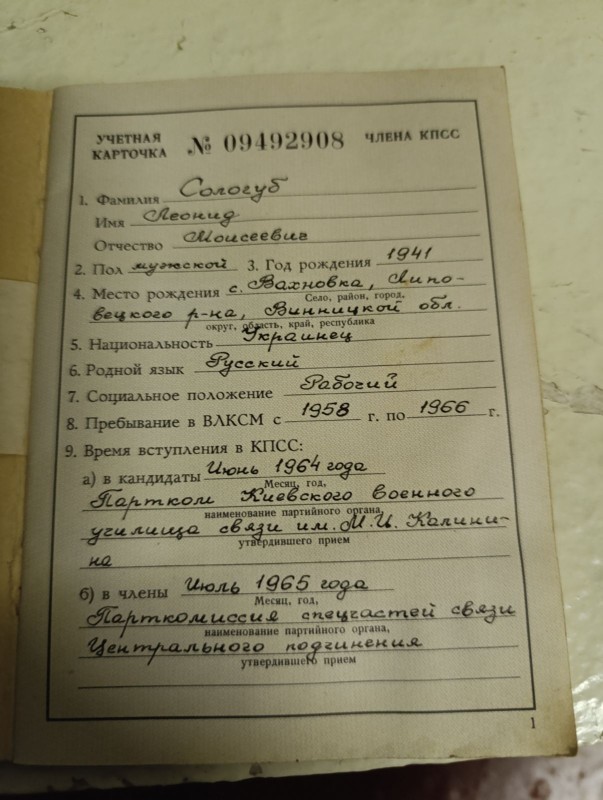 УЧЕТНАЯ КАРТОЧКА № 09492908 ЧЛЕНА КПСС
1. Фамилия Сологуб
Имя Леонид
Отчество Моисеевич
2. Пол мужской 3. Год рождения 1941
4. Место рождения с. Вахновка, Липо-
Село, район, город,
вецкого р-на, Винницкой обл.
округ, область, край, республика
5. Национальность Украинец
6. Родной язык Русский
7. Социальное положение Рабочий
8. Пребывание в ВЛКСМ с 1958 г. по 1966 г.
9. Время вступления в КПСС:
а) в кандидаты Июнь 1964 года
Месяц, год,
Партком Киевского военного
наименование партийного органа,
училища связи им. М.И. Калини-
утвердившего прием
на
б) в члены Июль 1965 года
Месяц, год,
Парткомиссия спецчастей связи
наименование партийного органа,
Центрального подчинения
утвердившего прием
1